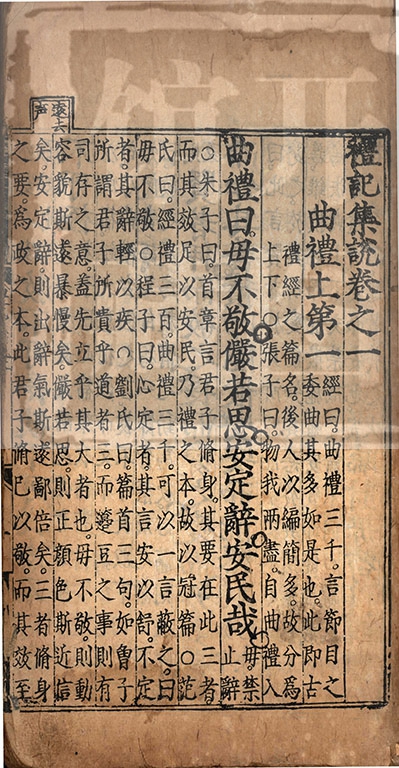 禮記集說卷之一
曲禮上第一
經曰。曲禮三千。言節目之
委曲其多如是也。此即古
禮經之篇名。後人以編簡多。故分爲
上下。○張子曰。物我兩盡。自曲禮入
曲禮曰。毋不敬。儼若思。安定辭。安民哉。
毋禁
止辭
○朱子曰。首章言君子脩身。其要在此三者。
而其效足以安民。乃禮之本。故以冠篇。○范
氏曰。經禮三百。曲禮三千。可以一言蔽之。曰
毋不敬。○程子曰。心定者。其言安以舒。不定
者。其辭輕以疾。○劉氏曰。篇首三句。如曾子
所謂君子所貴乎道者三。而籩豆之事則有
司存之意。蓋先立乎其大者也。毋不敬。則動
容貌斯遠暴慢矣。儼若思。則正顔色斯近信
矣。安定辭。則出辭氣斯遠鄙倍矣。三者脩身
之要。爲政之本。此君子脩已以敬。而其效至
遠去
声